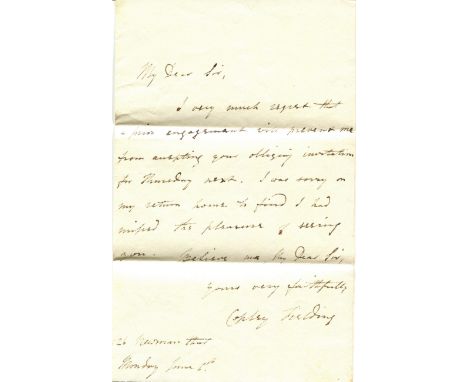 My Dear Sir,
I very much regret that
a prior engagement will prevent me
from accepting your obliging invitation
for Thursday next. I was sorry on
my return home to find I had
missed the pleasure of seeing
you. Believe me My Dear Sir,
yours very faithfully
Copley Fielding
26 Newman Street
Monday June 6th